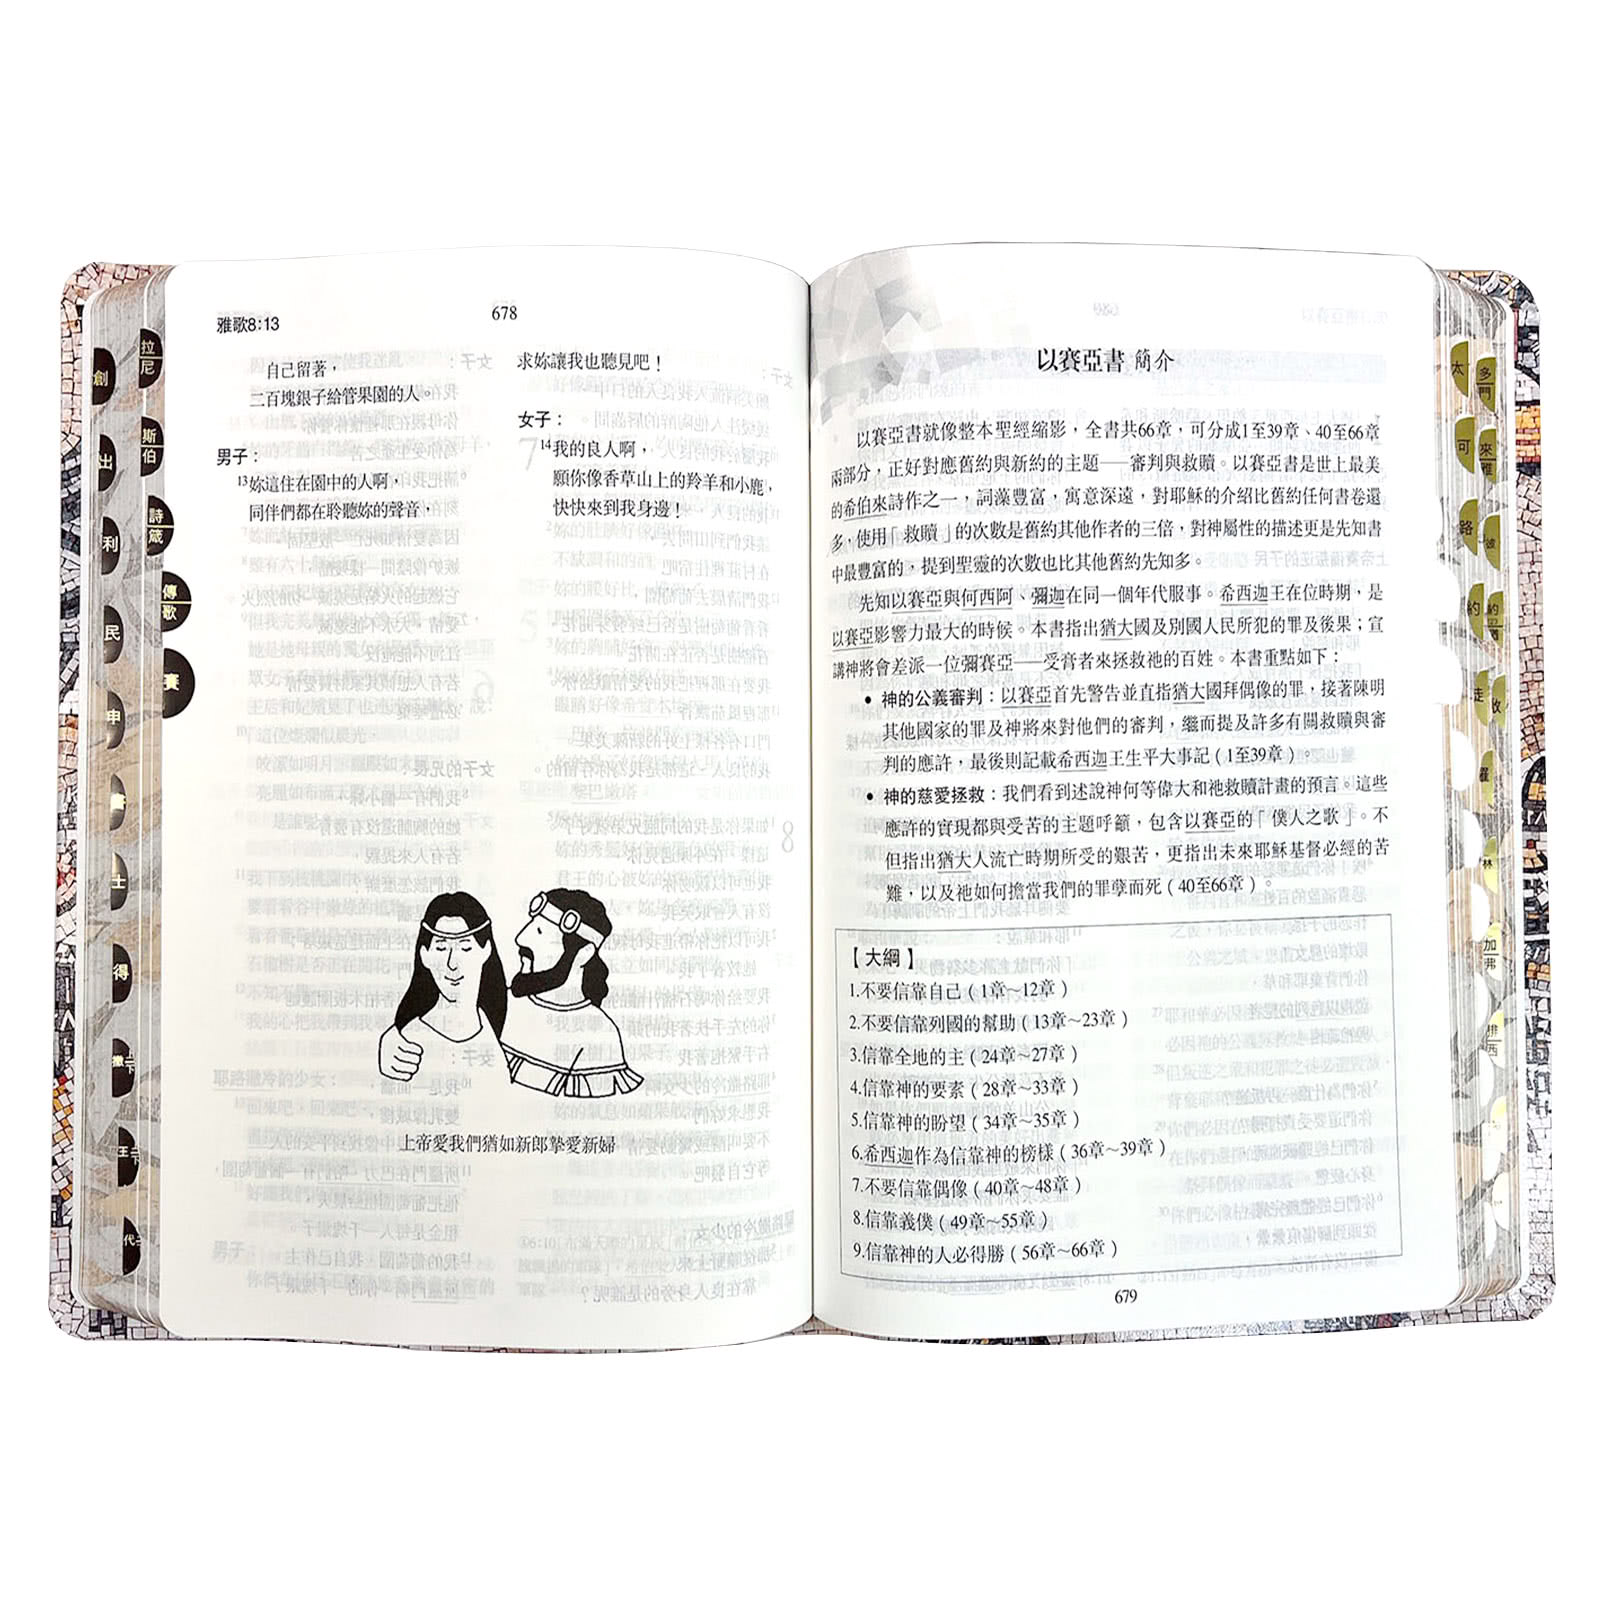 雅歌8:13
678
自己留著,
二百塊銀子給管果園的人。
男子:
13妳這住在園中的人啊,
同伴們都在聆聽妳的聲音,
求妳讓我也聽見吧!
女子:
14我的良人啊,
願你像香草山上的羚羊和小鹿,
快快來到我身邊!
上帝愛我們猶如新郎摯愛新婦
以賽亞書 簡介
以賽亞書就像整本聖經縮影,全書共66章,可分成1至39章、40至66章
兩部分,正好對應舊約與新約的主題——審判與救贖。以賽亞書是世上最美
的希伯來詩作之一,詞藻豐富,寓意深遠,對耶穌的介紹比舊約任何書卷還
多,使用「救贖」的次數是舊約其他作者的三倍,對神屬性的描述更是先知書
中最豐富的,提到聖靈的次數也比其他舊約先知多。
先知以賽亞與何西阿、彌迦在同一個年代服事。希西迦王在位時期,是
以賽亞影響力最大的時候。本書指出猶大國及別國人民所犯的罪及後果;宣
講神將會差派一位彌賽亞——受膏者來拯救祂的百姓。本書重點如下:
• 神的公義審判:以賽亞首先警告並直指猶大國拜偶像的罪,接著陳明
其他國家的罪及神將來對他們的審判,繼而提及許多有關救贖與審
判的應許,最後則記載希西迦王生平大事記(1至39章)。
• 神的慈愛拯救:我們看到述說神何等偉大和祂救贖計畫的預言。這些
應許的實現都與受苦的主題呼籲,包含以賽亞的「僕人之歌」。不
但指出猶大人流亡時期所受的艱苦,更指出未來耶穌基督必經的苦
難,以及祂如何擔當我們的罪孽而死(40至66章)。
【大綱】
1.不要信靠自己(1章~12章)
2.不要信靠列國的幫助(13章~23章)
3.信靠全地的主(24章~27章)
4.信靠神的要素(28章~33章)
5.信靠神的盼望(34章~35章)
6.希西迦作為信靠神的榜樣(36章~39章)
7.不要信靠偶像(40章~48章)
8.信靠義僕(49章~55章)
9.信靠神的人必得勝(56章~66章)
679
創
出
利
民
申
書
士
得
撒
王
代
拉
尼
斯
伯
詩
箴
傳
歌
賽
太
可
路
約
徒
羅
林
加
弗
西
多
門
來
雅
彼